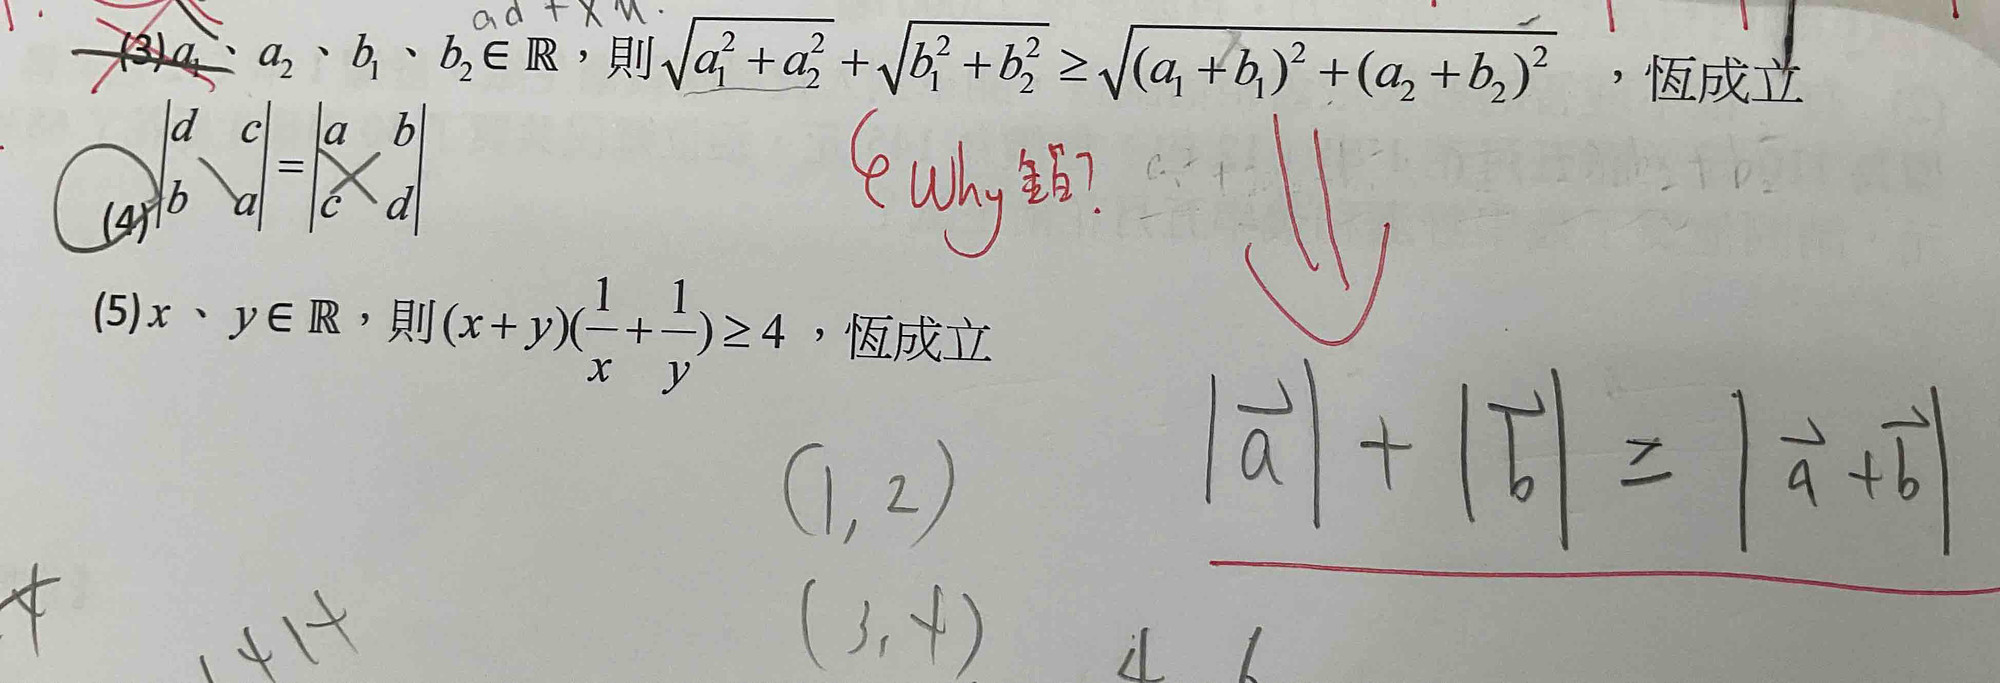 ad + x
(3) a₁、a₂、b₁、b₂ ∈ ℝ，則 √(a₁² + a₂²) + √(b₁² + b₂²) ≥ √((a₁ + b₁)² + (a₂ + b₂)²) ，恆成立
(4) |d c; b a| = |a b; c d|
Why 錯?
(5) x、y ∈ ℝ，則 (x + y)(1/x + 1/y) ≥ 4 ，恆成立
|a⃗| + |b⃗| ≥ |a⃗ + b⃗|
(1, 2)
(3, 4)